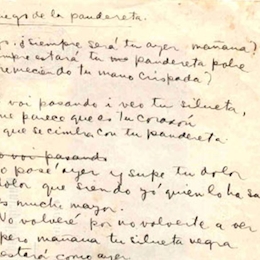 uego de la pandereta.
s. ¿Siempre será tu ayer, mañana?
mpre estará tu pandereta pobre
remeciendo tu mano crispada?
voi pasando i veo tu silueta,
me parece que es tu corazón
que se cimbra con tu pandereta.
o voi pasando
o pasé ayer y supe tu dolor
dolor que siendo yó quien lo ha sa
es mucho mayor.
No volveré por no volverte a ver
pero mañana tu silueta negra
estará como ayer